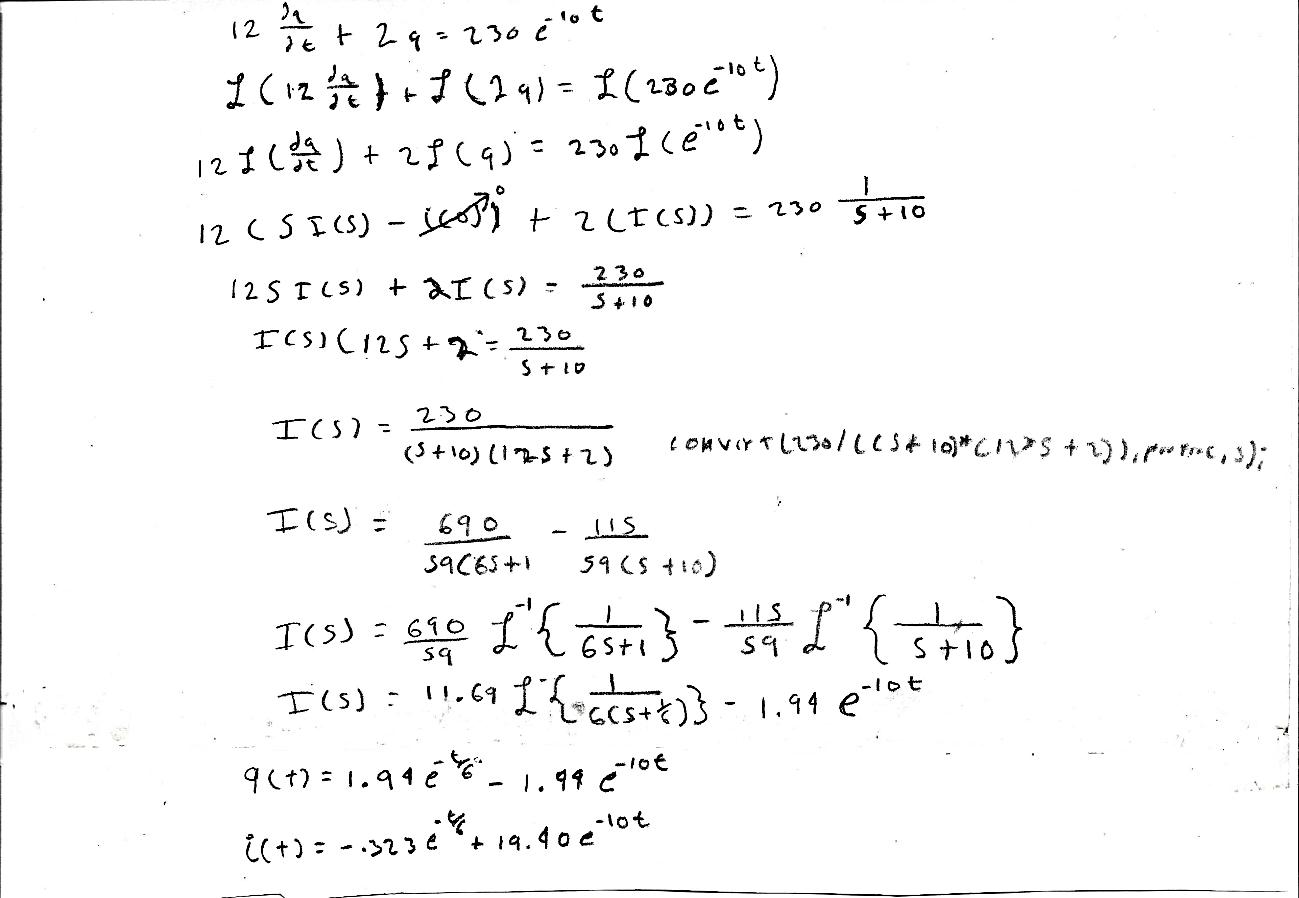 12 dq/dt + 2q = 230 e^-10t
ℒ(12 dq/dt) + ℒ(2q) = ℒ(230e^-10t)
12 ℒ(dq/dt) + 2ℒ(q) = 230 ℒ(e^-10t)
12 (S I(S) - i(0))^0 + 2(I(S)) = 230 1/(S+10)
12S I(S) + 2I(S) = 230/(S+10)
I(S)(12S+2 = 230/(S+10)
I(S) = 230/((S+10)(12S+2)) convert(230/((S+10)*(12*S+2)),parfrac,s);
I(S) = 690/(59(6S+1) - 115/(59(S+10))
I(S) = 690/59 ℒ^-1{1/(6S+1)} - 115/59 ℒ^-1{1/(S+10)}
I(S) = 11.69 ℒ^-{1/(6(S+1/6))} - 1.94 e^-10t
q(t) = 1.94 e^-t/6 - 1.94 e^-10t
i(t) = -.323 e^-t/6 + 19.40 e^-10t